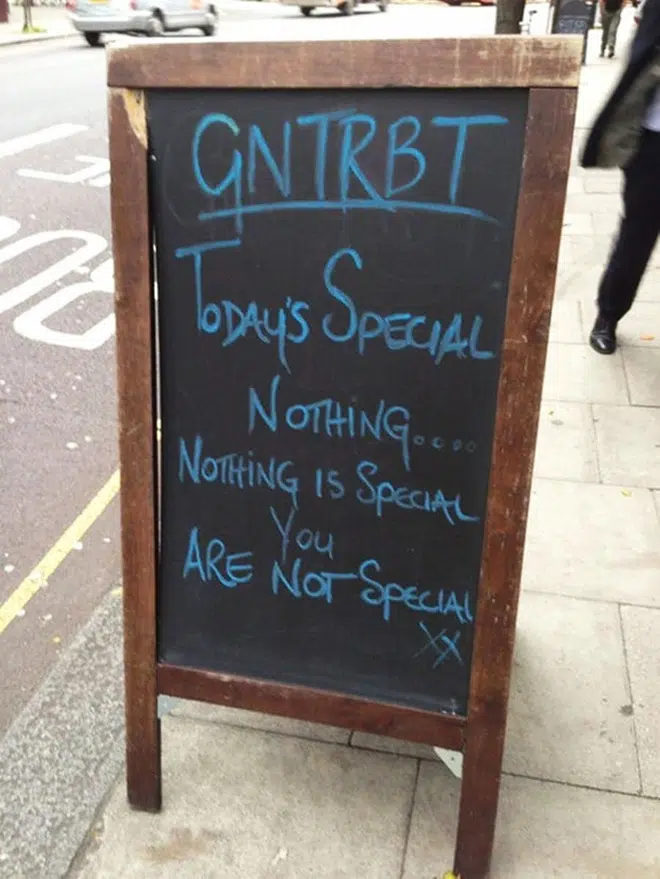 GNTRBT
TODAY'S SPECIAL
NOTHING....
NOTHING IS SPECIAL
YOU
ARE NOT SPECIAL
XX